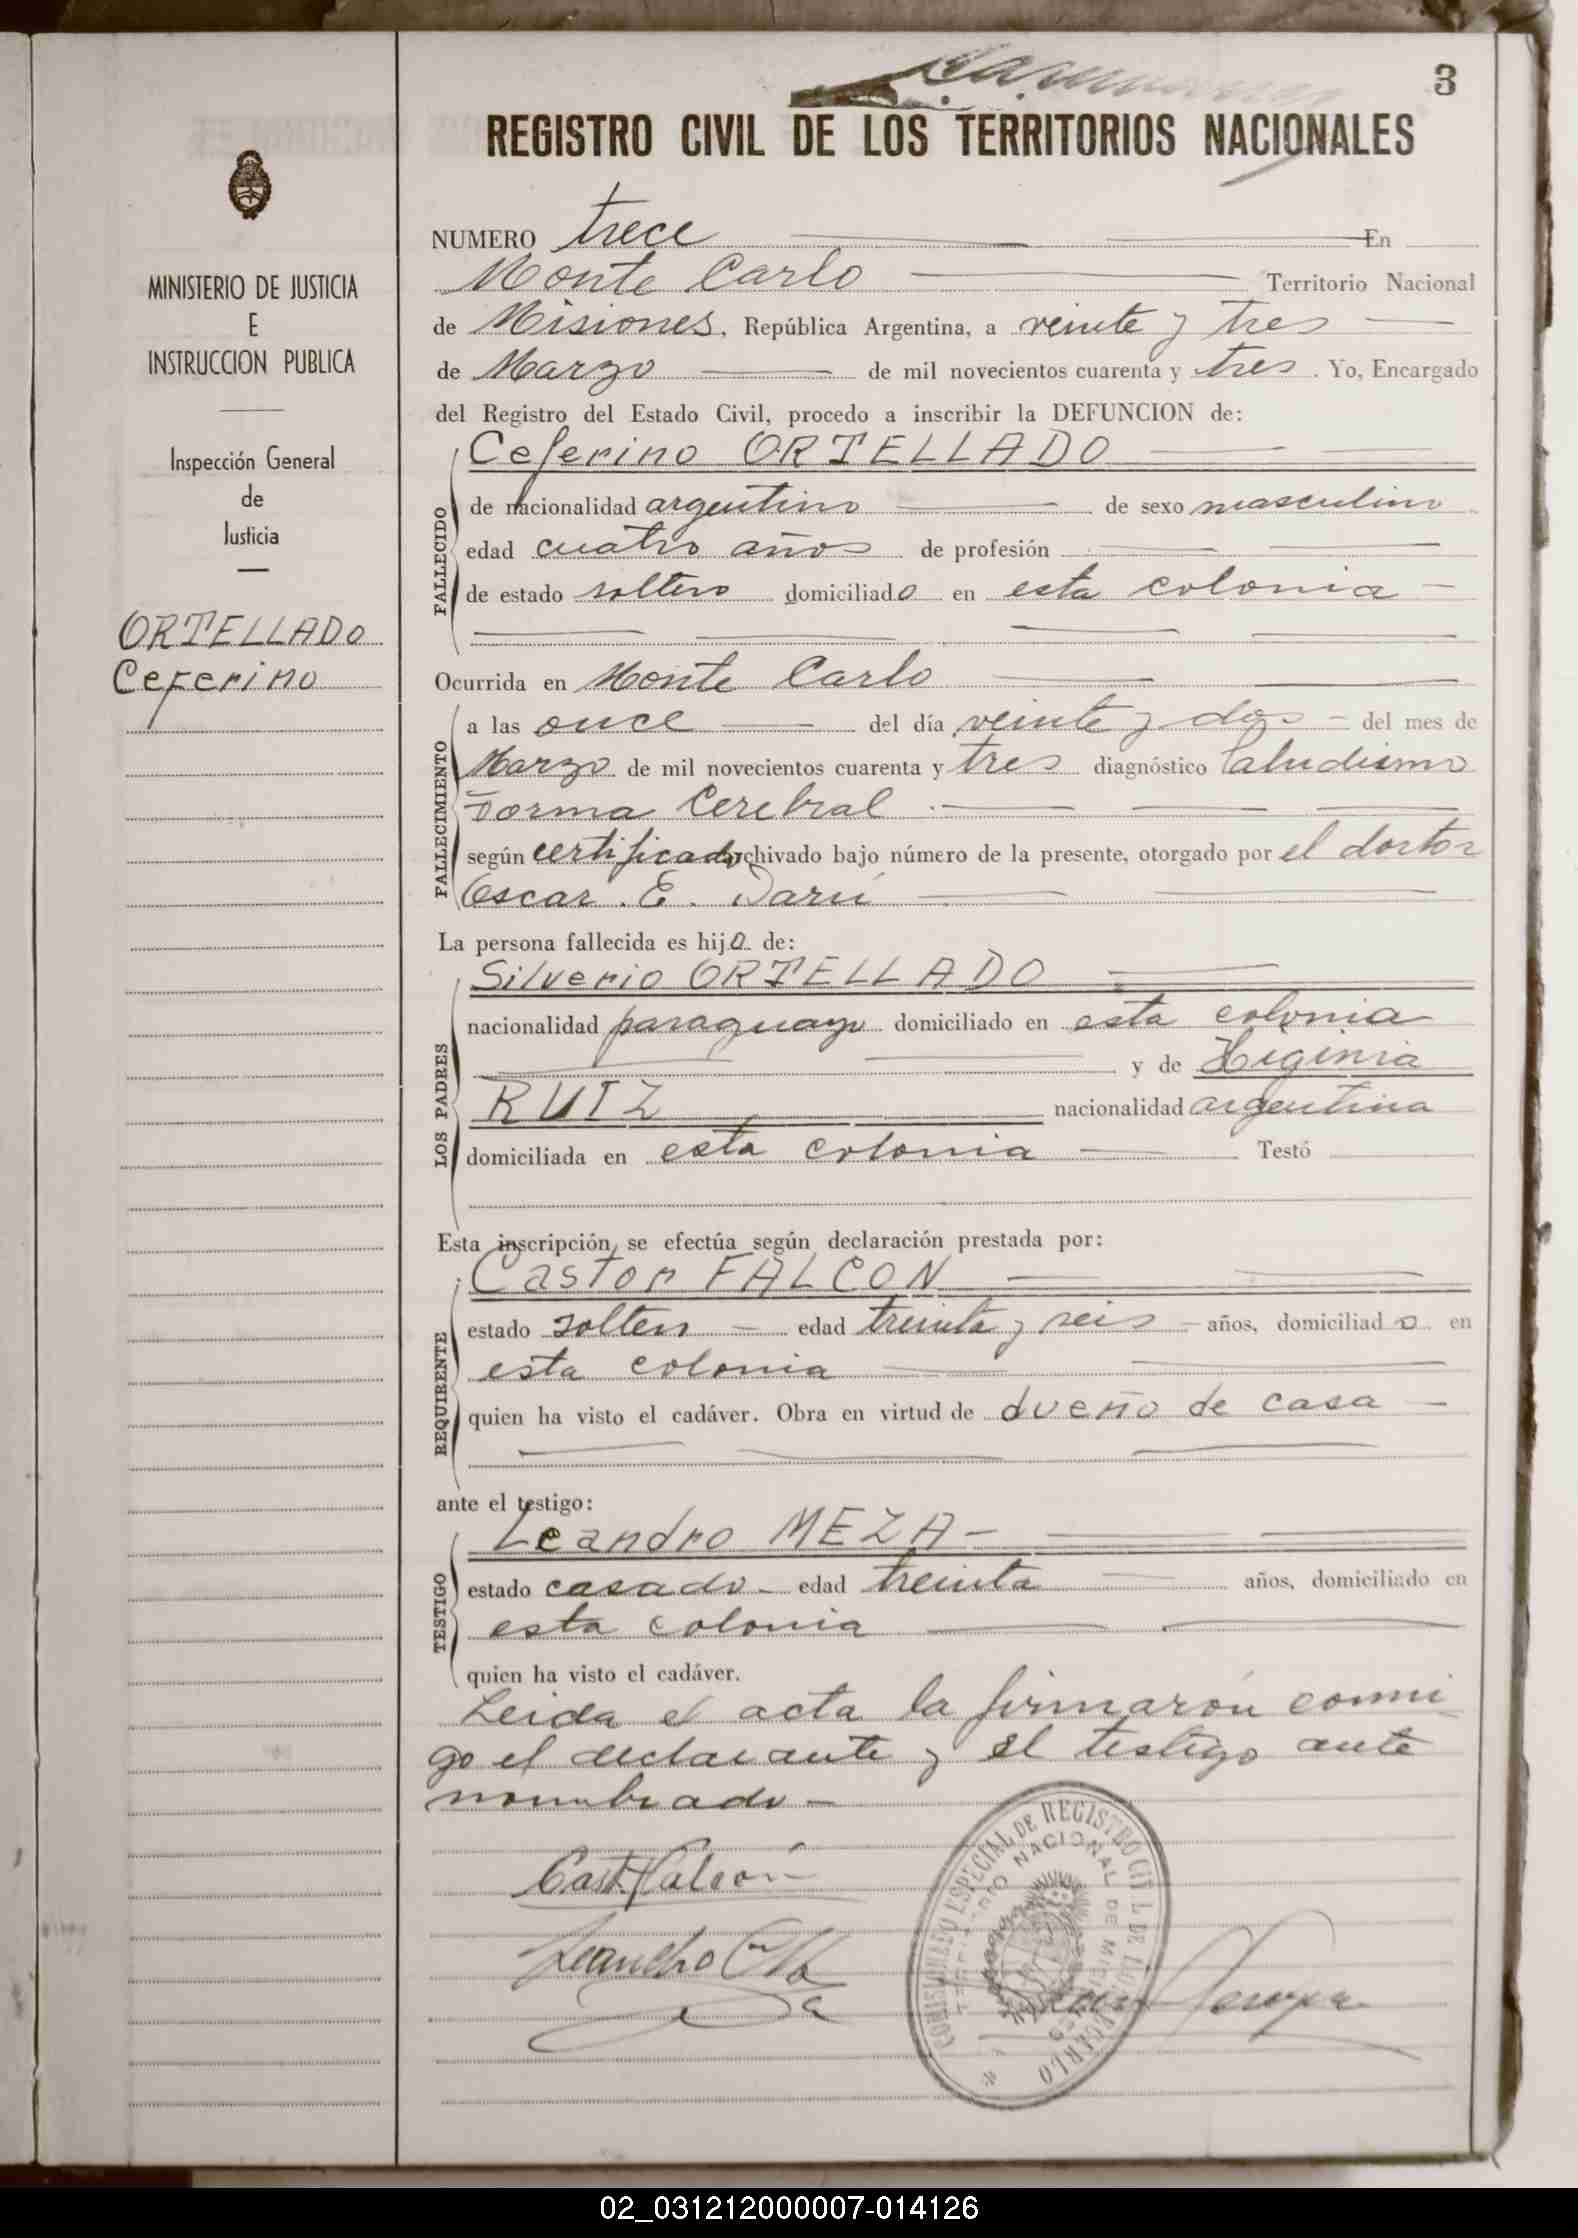 3
REGISTRO CIVIL DE LOS TERRITORIOS NACIONALES
MINISTERIO DE JUSTICIA
E
INSTRUCCION PUBLICA
Inspección General
de
Justicia
ORTELLADO
Ceferino
NUMERO trece En
Monte Carlo Territorio Nacional
de Misiones, República Argentina, a veinte y tres
de Marzo de mil novecientos cuarenta y tres. Yo, Encargado
del Registro del Estado Civil, procedo a inscribir la DEFUNCION de:
Ceferino ORTELLADO
FALLECIDO
de nacionalidad argentino de sexo masculino
edad cuatro años de profesión
de estado soltero domiciliado en esta colonia
Ocurrida en Monte Carlo
FALLECIMIENTO
a las once del día veinte y dos del mes de
Marzo de mil novecientos cuarenta y tres diagnóstico Paludismo
Forma Cerebral
según certificado archivado bajo número de la presente, otorgado por el doctor
Oscar. E. Darú
La persona fallecida es hijo de:
LOS PADRES
Silverio ORTELLADO
nacionalidad paraguayo domiciliado en esta colonia
y de Higinia
RUIZ nacionalidad argentina
domiciliada en esta colonia Testó
Esta inscripción, se efectúa según declaración prestada por:
REQUIRENTE
Castor FALCON
estado soltero edad treinta y seis años, domiciliado en
esta colonia
quien ha visto el cadáver. Obra en virtud de dueño de casa
ante el testigo:
TESTIGO
Leandro MEZA
estado casado edad treinta años, domiciliado en
esta colonia
quien ha visto el cadáver.
Leida el acta la firmarón conmi
go el declarante y el testigo ante
nombrado
Cast. Falcón
Leandro
COMISIONATO ESPECIAL DE REGISTRO CIVIL DE MONTECARLO
TERRITORIO NACIONAL DE MISIONES
02_031212000007-014126